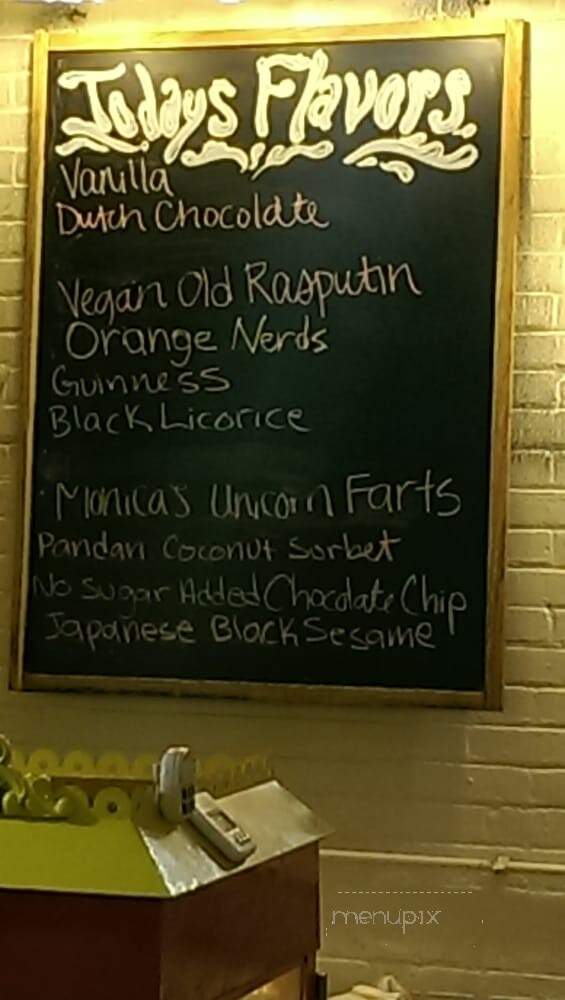 Todays Flavors
Vanilla
Dutch Chocolate
Vegan Old Rasputin
Orange Nerds
Guinness
Black Licorice
Monica's Unicorn Farts
Pandan Coconut Sorbet
No Sugar Added Chocolate Chip
Japanese Black Sesame
menupix